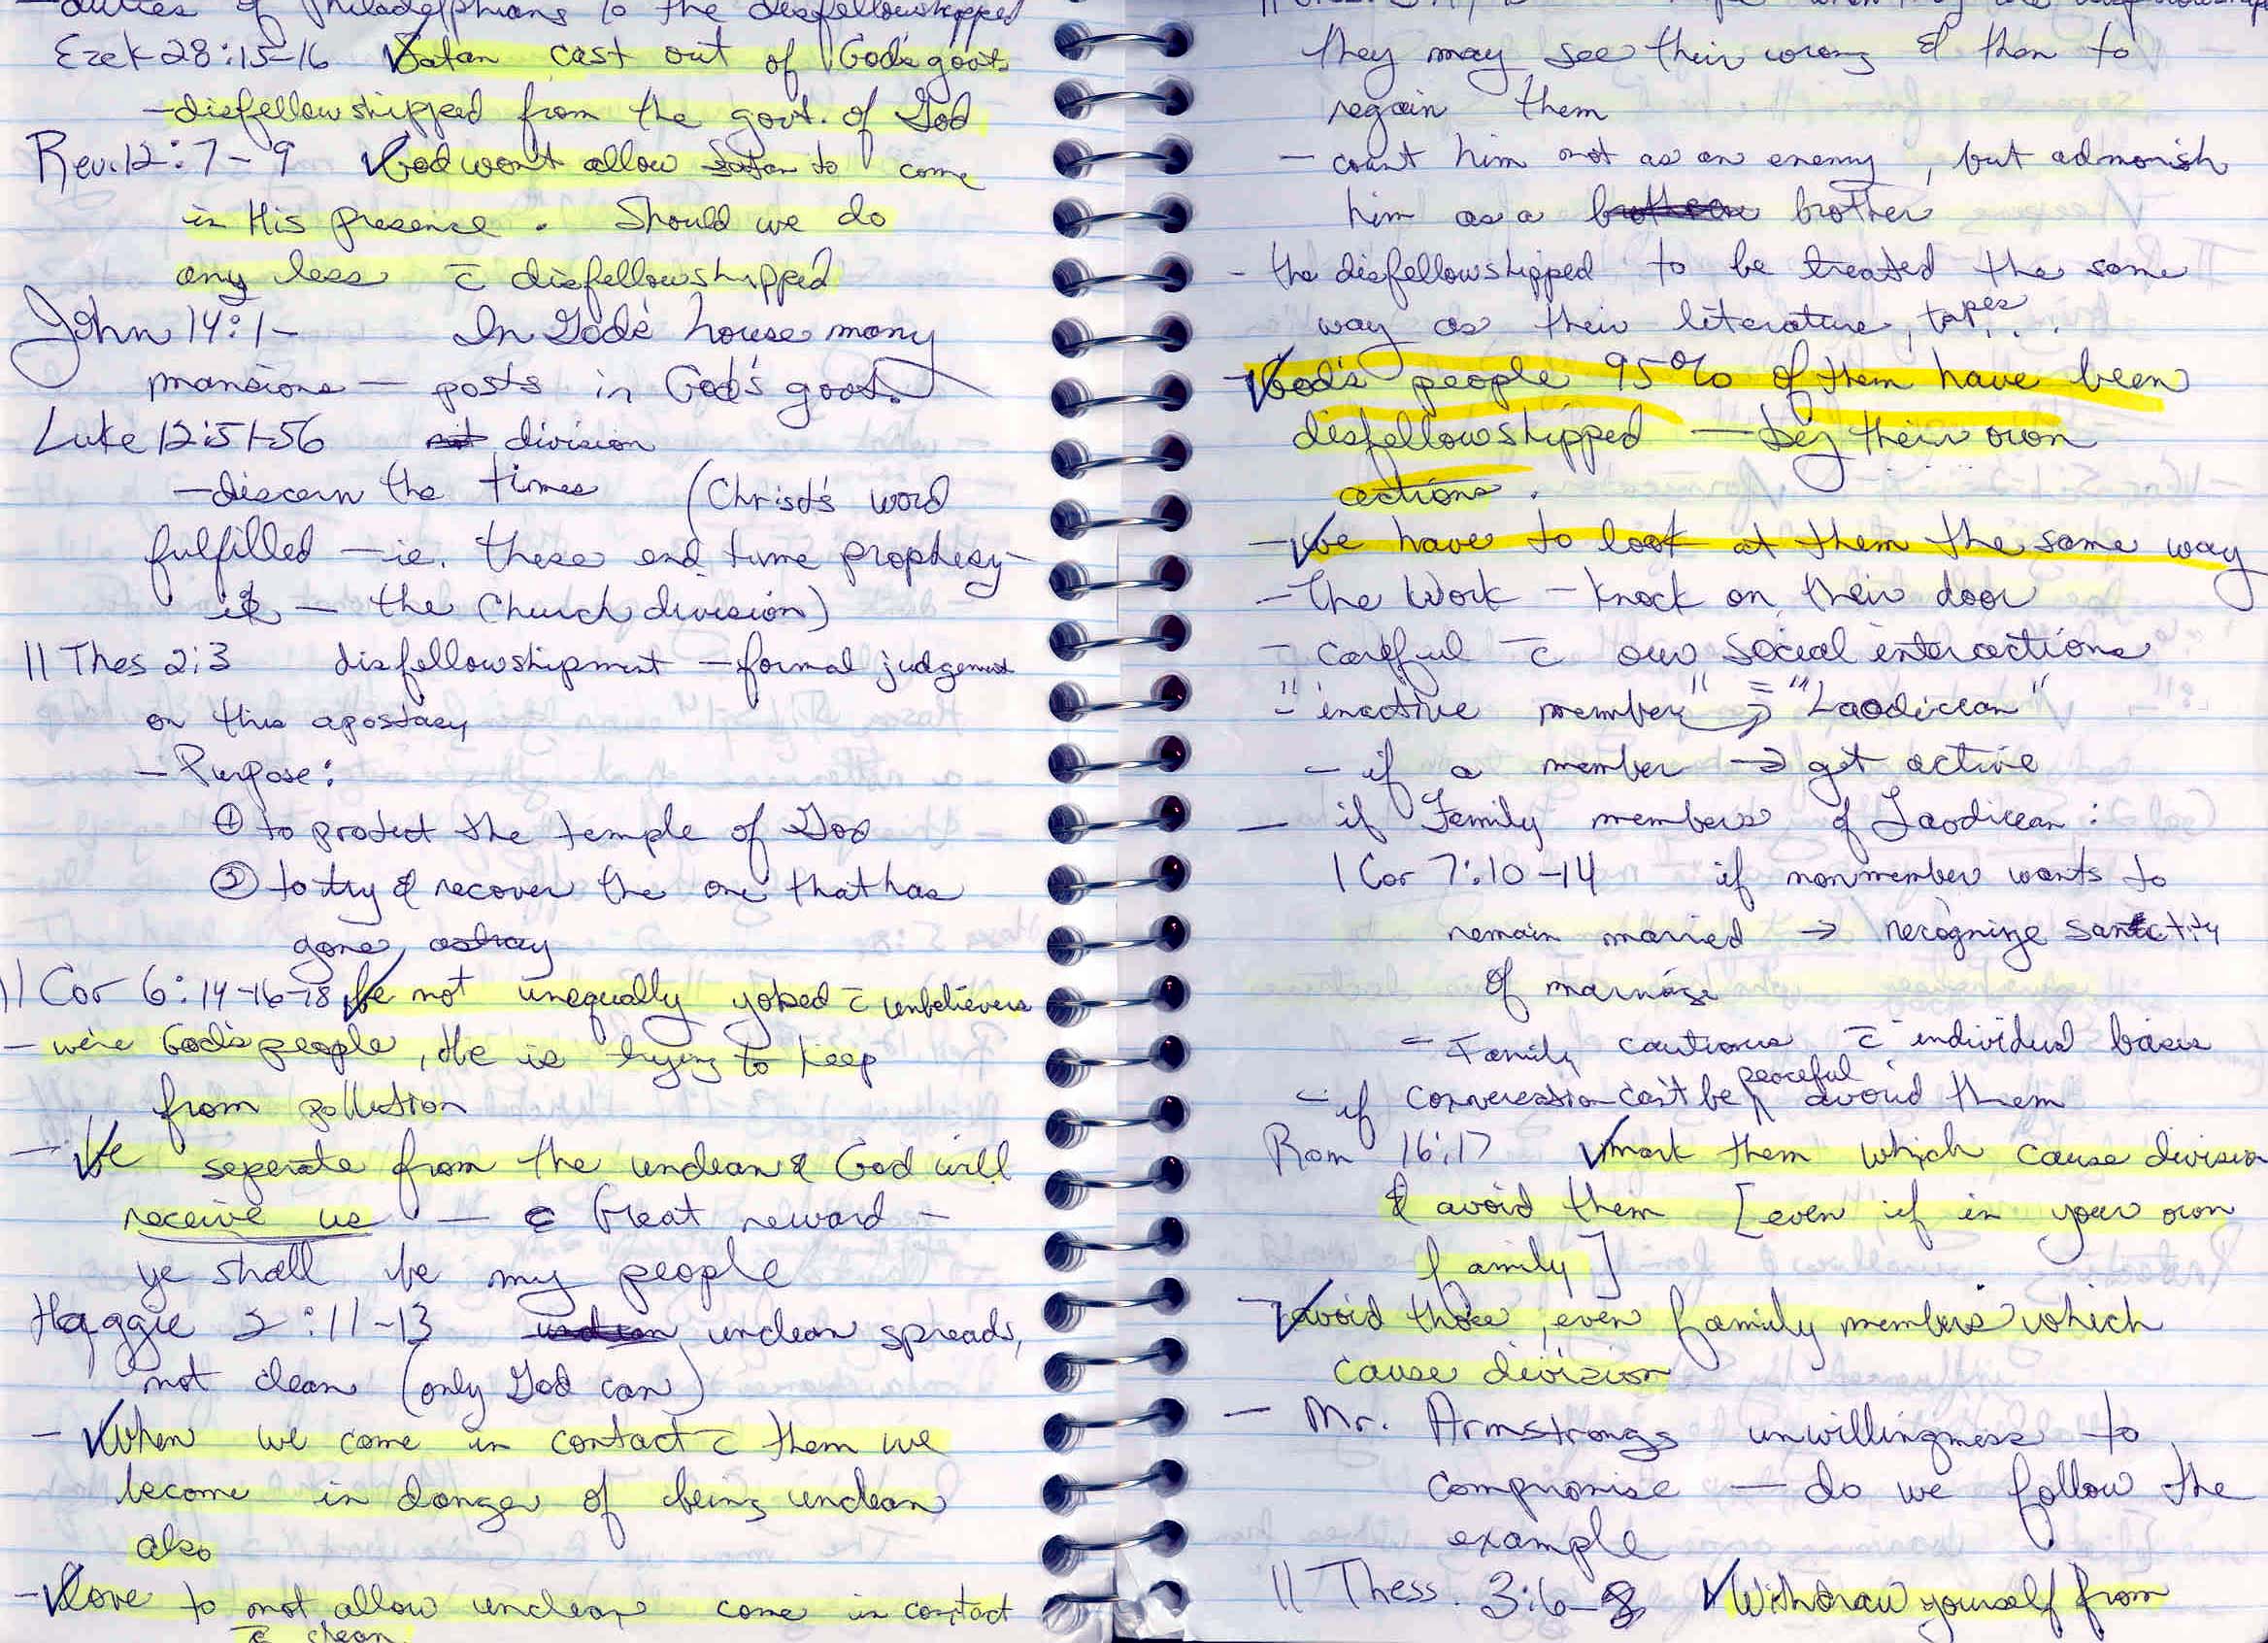 duties of Philadelphians to the disfellowshipped
Ezek 28:15-16 Satan cast out of God's govt.
-disfellowshipped from the govt. of God
Rev. 12:7-9 God won't allow Satan to come
in His presence. Should we do
any less c̄ disfellowshipped
John 14:1- In God's house many
mansions - posts in God's govt.
Luke 12:51-56 not division
-discern the times (Christ's word
fulfilled -ie. these end time prophesy
is - the Church division)
II Thes 2:3 disfellowshipment -formal judgement
on this apostacy
- Purpose:
① to protect the temple of God
② to try & recover the one that has
gone astray
II Cor 6:14-16-18 Be not unequally yoked c̄ unbelievers
- we're God's people, He is trying to keep
from pollution
- Be seperate from the unclean & God will
receive us - Great reward -
ye shall be my people
Haggie 2:11-13 unclean unclean spreads,
not clean (only God can)
- When we come in contact c̄ them we
become in danger of being unclean
also
- love to not allow unclean come in contact
c̄ clean
they may see their wrong & then to
regain them
- count him not as an enemy, but admonish
him as a brother
- the disfellowshipped to be treated the same
way as their literature, tapes...
- God's people 95% of them have been
disfellowshipped - by their own
actions.
- We have to look at them the same way
- The Work - knock on their door
- careful c̄ our social interactions
- "inactive member" = "Laodicean"
- if a member → get active
- if Family members of Laodicean:
I Cor 7:10-14 if nonmember wants to
remain married → recognize sanctity
of marriage
- Family cautious c̄ individual basis
- if conversation can't be peaceful avoid them
Rom 16:17 mark them which cause division
& avoid them [even if in your own
family]
- avoid those, even family members which
cause division
- Mr. Armstrongs unwillingness to
compromise - do we follow the
example
II Thess. 3:6-8 Withdraw yourself from